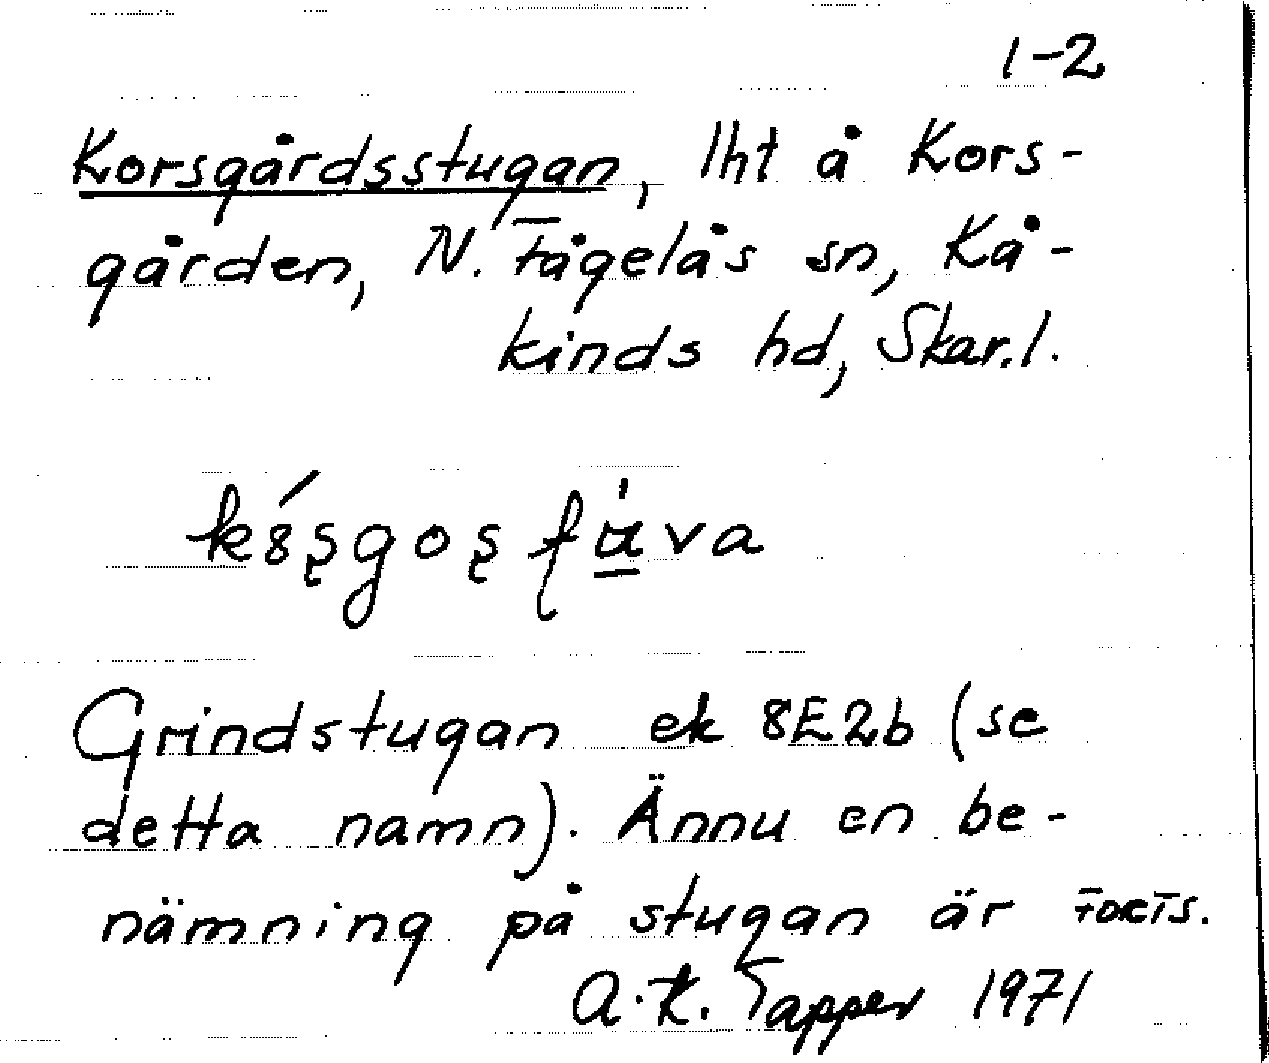 1-2
Korsgårdsstugan, lht å Kors-
gården, N. Fågelås sn, Kå-
kinds hd, Skar.l.
Grindstugan ek 8E2b (se
detta namn). Ännu en be-
nämning på stugan är FORTS.
A.K. Tapper 1971